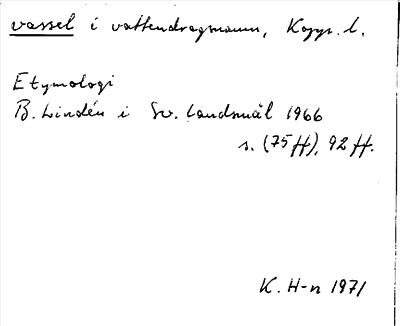 vassel i vattendragsnamn, Koppr. l.
Etymologi
B. Lindén i Sv. Landsmål 1966
s. (75 ff), 92 ff.
K. H-n 1971